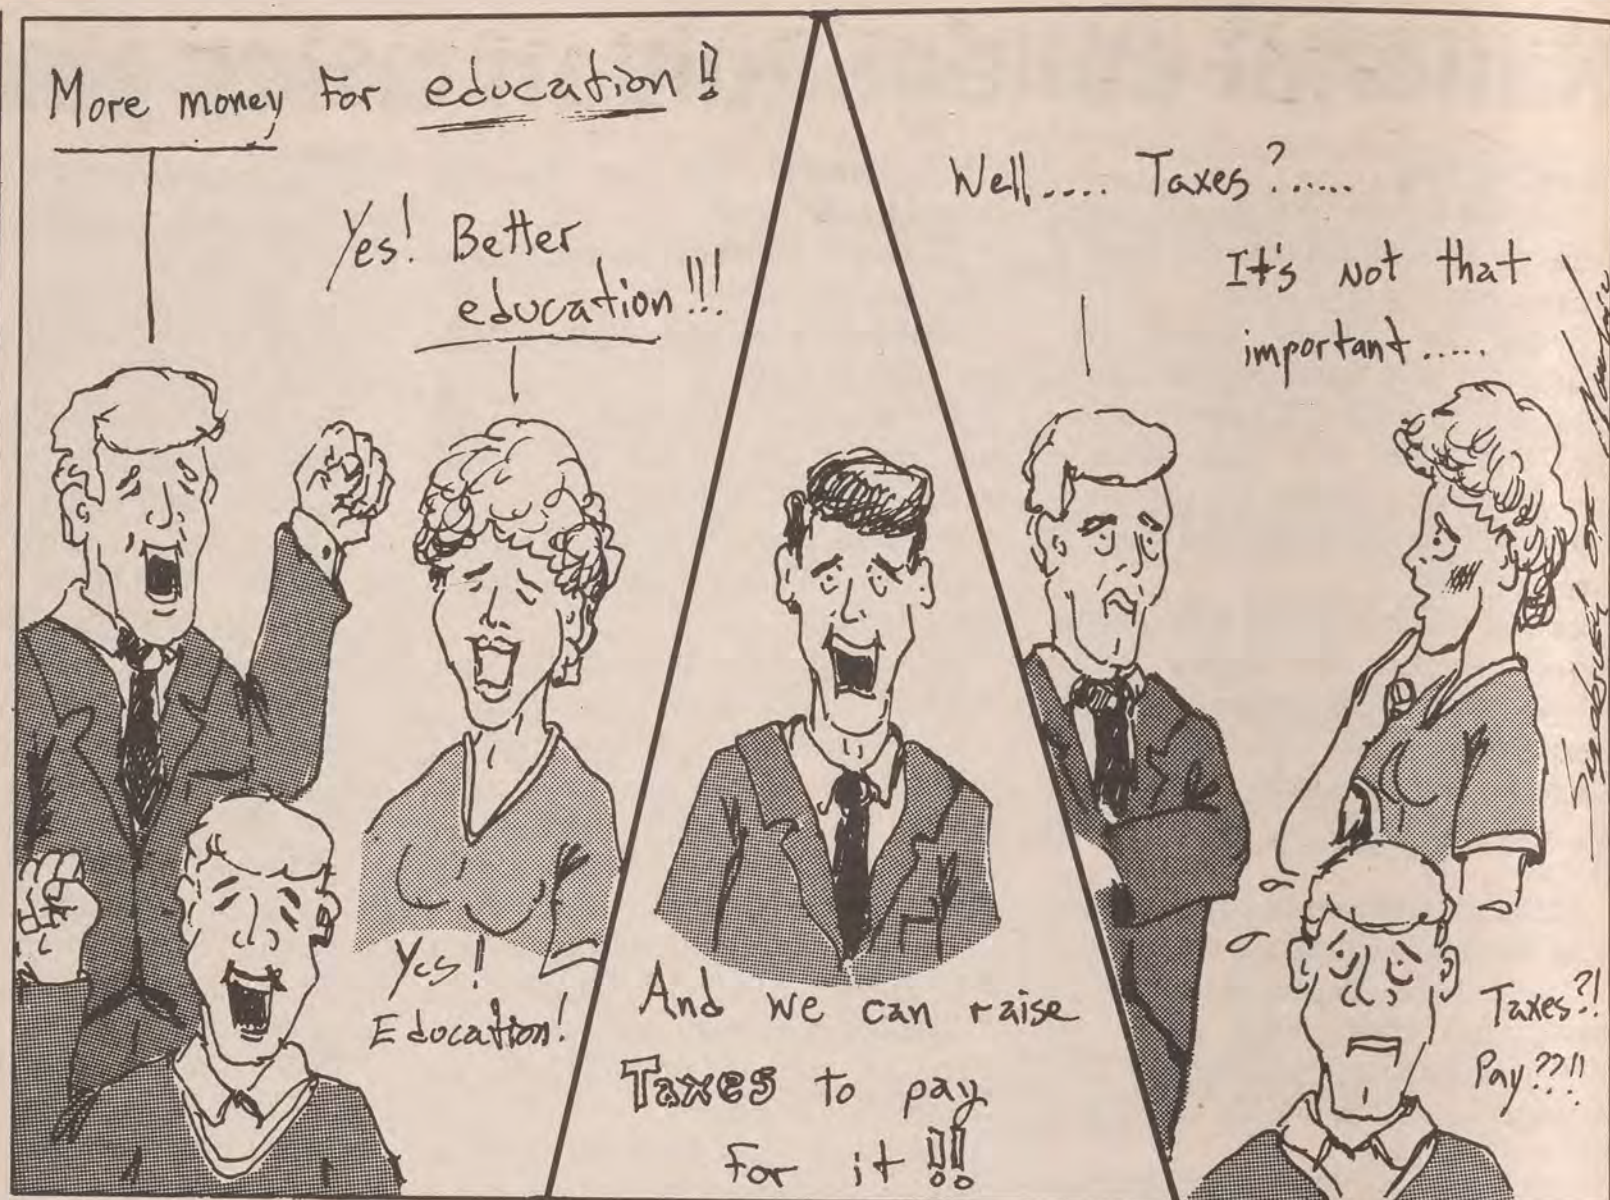 More money for education!!
Yes! Better
education!!!
Yes!
Education!
And we can raise
Taxes to pay
for it!!
Well..... Taxes?.....
It's not that
important.....
Taxes?!
Pay??!!